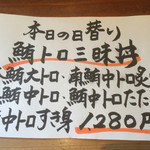 本日の日替り
鮪トロ三昧丼
鮪大トロ・南鮪中トロ炙
鮪中トロ・鮪中トロたた
中トロすき身 1,280円